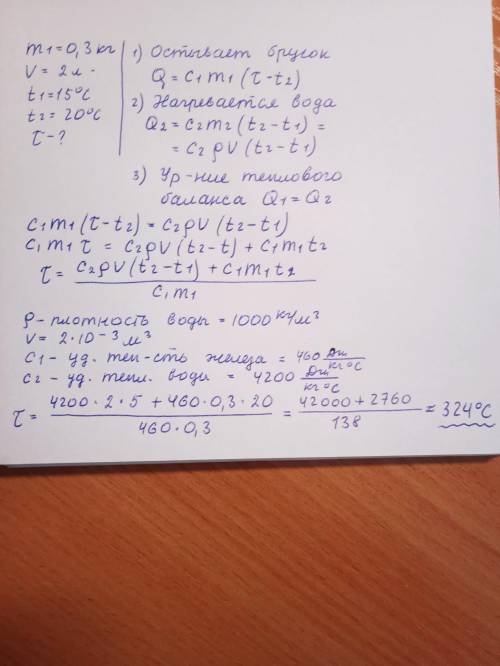 m1 = 0,3 кг
V = 2 л.
t1 = 15°C
t2 = 20°C
τ - ?
1) Остывает брусок
Q = c1 m1 (τ - t2)
2) Нагревается вода
Q2 = c2 m2 (t2 - t1) =
= c2 ρV (t2 - t1)
3) Ур-ние теплового
баланса Q1 = Q2
c1 m1 (τ - t2) = c2 ρV (t2 - t1)
c1 m1 τ = c2 ρV (t2 - t) + c1 m1 t2
τ = (c2 ρV (t2 - t1) + c1 m1 t2) / (c1 m1)
ρ - плотность воды = 1000 кг/м³
V = 2·10⁻³ м³
c1 - уд. теп-сть железа = 460 Дж/кг°C
c2 - уд. тепл. воды = 4200 Дж/кг°C
τ = (4200·2·5 + 460·0,3·20) / (460·0,3) = (42000 + 2760) / 138 = 324°C